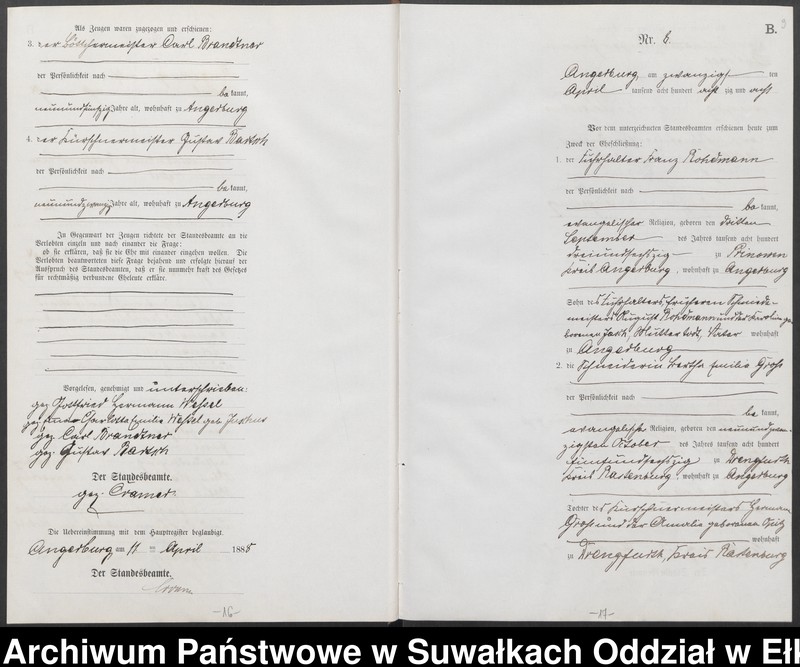 Als Zeugen waren zugezogen und erschienen:
3. der Böttchermeister Carl Brandtner
der Persönlichkeit nach
be kannt,
neunundfünfzig Jahre alt, wohnhaft zu Angerburg
4. der Kürschnermeister Gustav Bartsch
der Persönlichkeit nach
be kannt,
neunundzwanzig Jahre alt, wohnhaft zu Angerburg
In Gegenwart der Zeugen richtete der Standesbeamte an die
Verlobten einzeln und nach einander die Frage:
ob sie erklären, daß sie die Ehe mit einander eingehen wollen. Die
Verlobten beantworteten diese Frage bejahend und erfolgte hierauf der
Ausspruch des Standesbeamten, daß er sie nunmehr kraft des Gesetzes
für rechtmäßig verbundene Eheleute erkläre.
Vorgelesen, genehmigt und unterschrieben:
gez. Gottfried Hermann Wessel
gez. Charlotte Emilie Wessel geb.
gez. Carl Brandtner
gez. Gustav Bartsch
Der Standesbeamte.
gez. Cramer
Die Uebereinstimmung mit dem Hauptregister beglaubigt.
Angerburg am 11 April 1888
Der Standesbeamte.
-16-
B.
Nr. 8.
Angerburg am zwanzigsten
April tausend acht hundert acht zig und acht
Vor dem unterzeichneten Standesbeamten erschienen heute zum
Zweck der Eheschließung:
1. der Fuhrhalter Franz Rohdmann
der Persönlichkeit nach
be kannt,
evangelischer Religion, geboren den dritten
September des Jahres tausend acht hundert
dreiundsechszig zu Prinowen
Kreis Angerburg, wohnhaft zu Angerburg
Sohn des Fuhrhalters, früheren Schmiede-
meisters August Rohdmann und der Karoline ge-
borenen, Mutter todt, Vater wohnhaft
zu Angerburg
2. die Schneiderin Bertha Emilie Groß
der Persönlichkeit nach
be kannt,
evangelischer Religion, geboren den neunundzwan-
zigsten October des Jahres tausend acht hundert
fünfundsechszig zu Drengfurth
Kreis Rastenburg, wohnhaft zu Angerburg
Tochter des Kürschnermeisters Hermann
Groß und der Amalie geborenen
wohnhaft
zu Drengfurth, Kreis Rastenburg
-17-
Archiwum Państwowe w Suwałkach Oddział w Eł